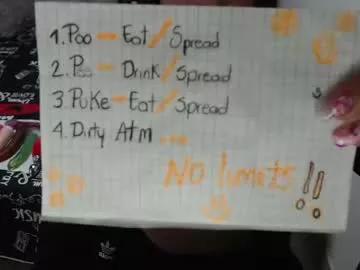 1. Poo - Eat / Spread
2. Pee - Drink / Spread
3. Puke - Eat / Spread
4. Dirty Atm ...
No limits !!